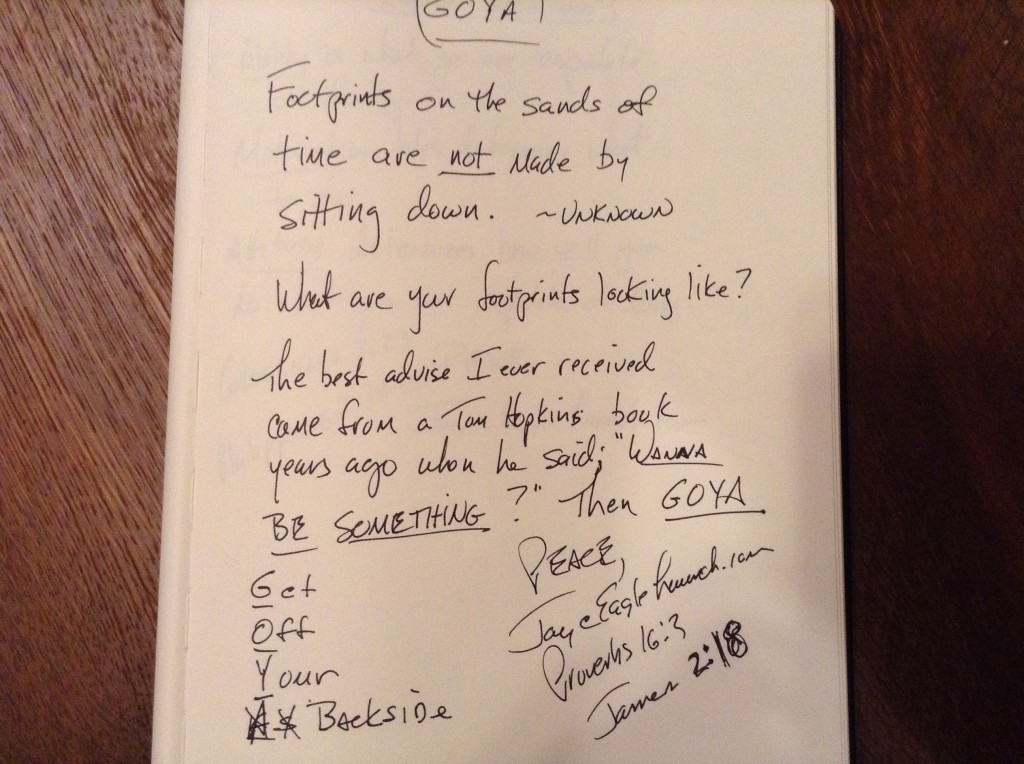 GOYA
Footprints on the sands of
time are not made by
sitting down. ~UNKNOWN
What are your footprints looking like?
The best advise I ever received
came from a Tom Hopkins book
years ago when he said; "WANNA
BE SOMETHING?" Then GOYA
PEACE,
Jay@Eaglelaunch.com
Proverbs 16:3
James 2:18
Get
Off
Your
BACKSIDE